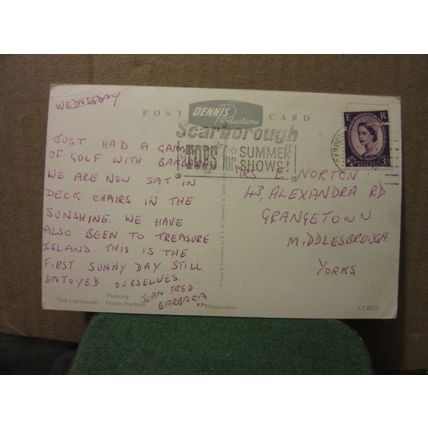 WEDNESDAY
POST CARD
DENNIS
Productions
Scarborough
TOPS for SUMMER
SHOWS!
E R
3D
JUST HAD A GAME
OF GOLF WITH BARBARA
WE ARE NOW SAT IN
DECK CHAIRS IN THE
SUNSHINE. WE HAVE
ALSO BEEN TO TREASURE
ISLAND. THIS IS THE
FIRST SUNNY DAY STILL
ENJOYED OURSELVES.
JEAN FRED
BARBARA
MRS E NORTON
43, ALEXANDRA RD
GRANGETOWN
MIDDLESBROUGH
YORKS
The Lighthouse.